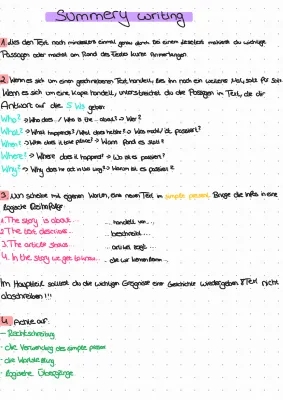 Summery writing
1. Lies den Text noch mindestens einmal genau durch. Bei einem Lesetext markierst du wichtige
Passagen oder machst am Rand des Textes kurze Anmerkungen.
2. Wenn es sich um einen geschriebenen Text handelt, lies ihn noch ein weiteres Mal, Satz für Satz.
Wenn es sich um eine Kopie handelt, unterstreichst du die Passagen im Text, die dir
Antwort auf die 5 Ws geben
Who? → Who does.../ Who is the ... about? → Wer?
What? → What happened? / What does he/she? → Was macht/ ist passiert?
When? → When does it take place? → Wann fand es statt?
Where? → Where does it happens? → Wo ist es passiert?
Why? → Why does he act in this way? → Warum ist es passiert?
3. Nun schreibst mit eigenen Worten, eine neuen Text im simple present. Bringe die Infos in eine
logische Reihenfolge
1. The story is about... ... handelt von...
2. The text describes... ... beschreibt...
3. The article shows ... artikel zeigt...
4. In the story we get to know... ... die wir kennenlernen...
Im Hauptteil solltest du die wichtigen Ereignisse einer Geschichte wiedergeben !!Text nicht
abschreiben!!!
4. Achte auf:
- Rechtschreibung
- die Verwendung des simple present
- die Wortstellung
- logische Übergänge